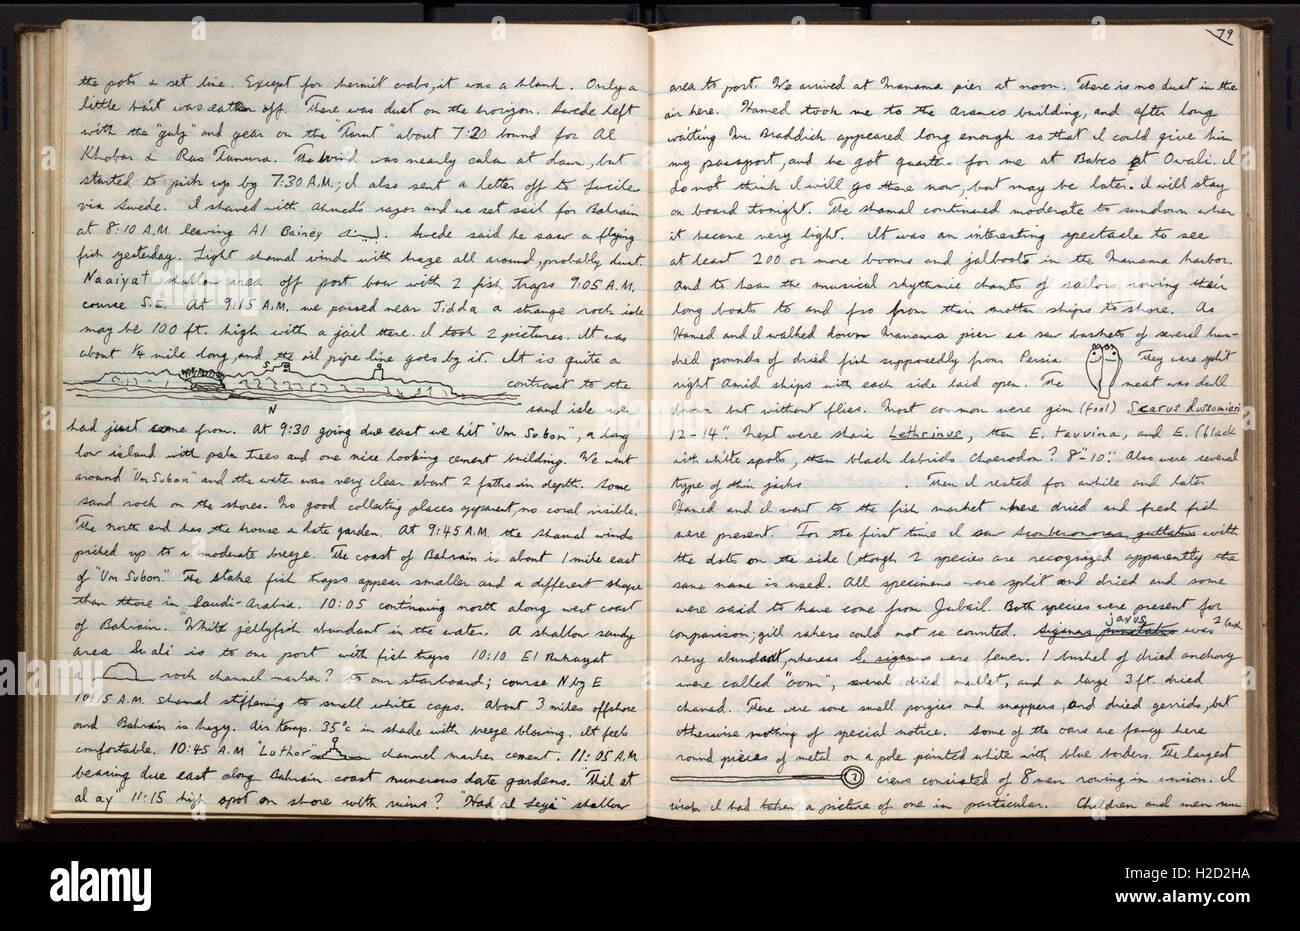 the pots & set line. Except for hermit crabs, it was a blank. Only a
little bait was eaten off. There was dust on the horizon. Swede left
with the "gulf" and gear on the "Tarut" about 7:20 bound for Al
Khobar & Ras Tanura. The wind was nearly calm at dawn, but
started to pick up by 7:30 A.M.; I also sent a letter off to Lucile
via Swede. I shaved with Ahmed's razor and we set sail for Bahrain
at 8:10 A.M. leaving Al Bainey. Swede said he saw a flying
fish yesterday. Light shamal wind with haze all around, probably dust.
Naaiyat shallow area off port bow with 2 fish traps 9:05 A.M.
course S.E. At 9:15 A.M. we passed near Jidda a strange rock isle
may be 100 ft. high with a jail there. I took 2 pictures. It was
about 1/4 mile long, and the oil pipe line goes by it. It is quite a
contrast to the
sand isle we
N
had just come from. At 9:30 going due east we hit "Um Subon", a long
low island with palm trees and one nice looking cement building. We went
around "Um Subon" and the water was very clear about 2 faths in depth. Some
sand rock on the shores. No good collecting places apparent, no coral visible.
The north end has the house & date garden. At 9:45 A.M. the shamal winds
picked up to a moderate breeze. The coast of Bahrain is about 1 mile east
of "Um Subon." The stake fish traps appear smaller and a different shape
than those in Saudi-Arabia. 10:05 continuing north along west coast
of Bahrain. White jellyfish abundant in the water. A shallow sandy
area Suali is to our port with fish traps 10:10 El Ruhayat
a rock channel marker? to our starboard; course N by E
10:15 A.M. shamal stiffening to small white caps. About 3 miles offshore
and Bahrain is hazy. Air temp. 35°c in shade with breeze blowing. It feels
comfortable. 10:45 A.M "Luthor" channel marker cement. 11:05 A.M.
bearing due east along Bahrain coast numerous date gardens. "Thil et
al ay" 11:15 high spot on shore with ruins? "Had al Seya" shallow
79
area to port. We arrived at Manama pier at noon. There is no dust in the
air here. Hamed took me to the Aramco building, and after long
waiting Mr. Braddick appeared long enough so that I could give him
my passport, and he got quarters for me at Babco at Owali. I
do not think I will go there now, but may be later. I will stay
on board tonight. The shamal continued moderate to sundown when
it became very light. It was an interesting spectacle to see
at least 200 or more booms and jalboots in the Manama harbor.
And to hear the musical rhythmic chants of sailors rowing their
long boats to and fro from their mother ships to shore. As
Hamed and I walked down Manama pier we saw baskets of several hun-
dred pounds of dried fish supposedly from Persia They were split
right amid ships with each side laid open. The meat was dull
brown but without flies. Most common were gim (fool) Scarus dussumieri
12-14". Next were shari Lethrinus, then E. tauvina, and E. (black
with white spots, then black labrids Choerodon? 8"-10". Also were several
type of thin jacks . Then I rested for awhile and later
Hamed and I went to the fish market where dried and fresh fish
were present. For the first time I saw scomberomorus guttatus with
the dots on the side (though 2 species are recognized apparently the
same name is used. All specimens were split and dried and some
were said to have come from Jubail. Both species were present for
comparison; gill rakers could not be counted. Siganus javus was
very abundant, whereas S. siganus were fewer. 1 bushel of dried anchovy
were called "oom", several dried mullet, and a large 3 ft. dried
chanad. There were some small porgies and snappers, and dried gerrids, but
otherwise nothing of special notice. Some of the oars are fancy here
round pieces of metal on a pole painted white with blue borders. The largest
crews consisted of 8 men rowing in unison. I
wish I had taken a picture of one in particular. Children and men
alamy
Image ID: H2D2HA
www.alamy.com